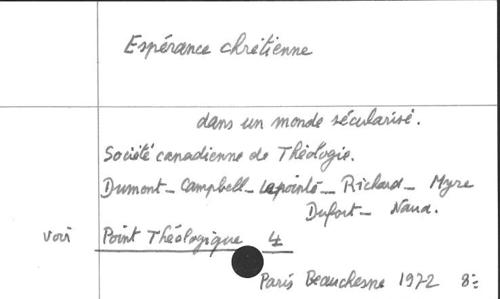 Espérance chrétienne
dans un monde sécularisé.
Société canadienne de Théologie.
Dumont - Campbell - Lapointe - Richard - Myre
Dufort - Naud.
voir Point Théologique 4
Paris Beauchesne 1972 8º